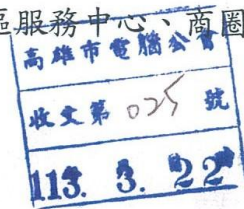 區服務中心、商圈
高雄市電腦公會
收文第 025 號
113. 3. 22